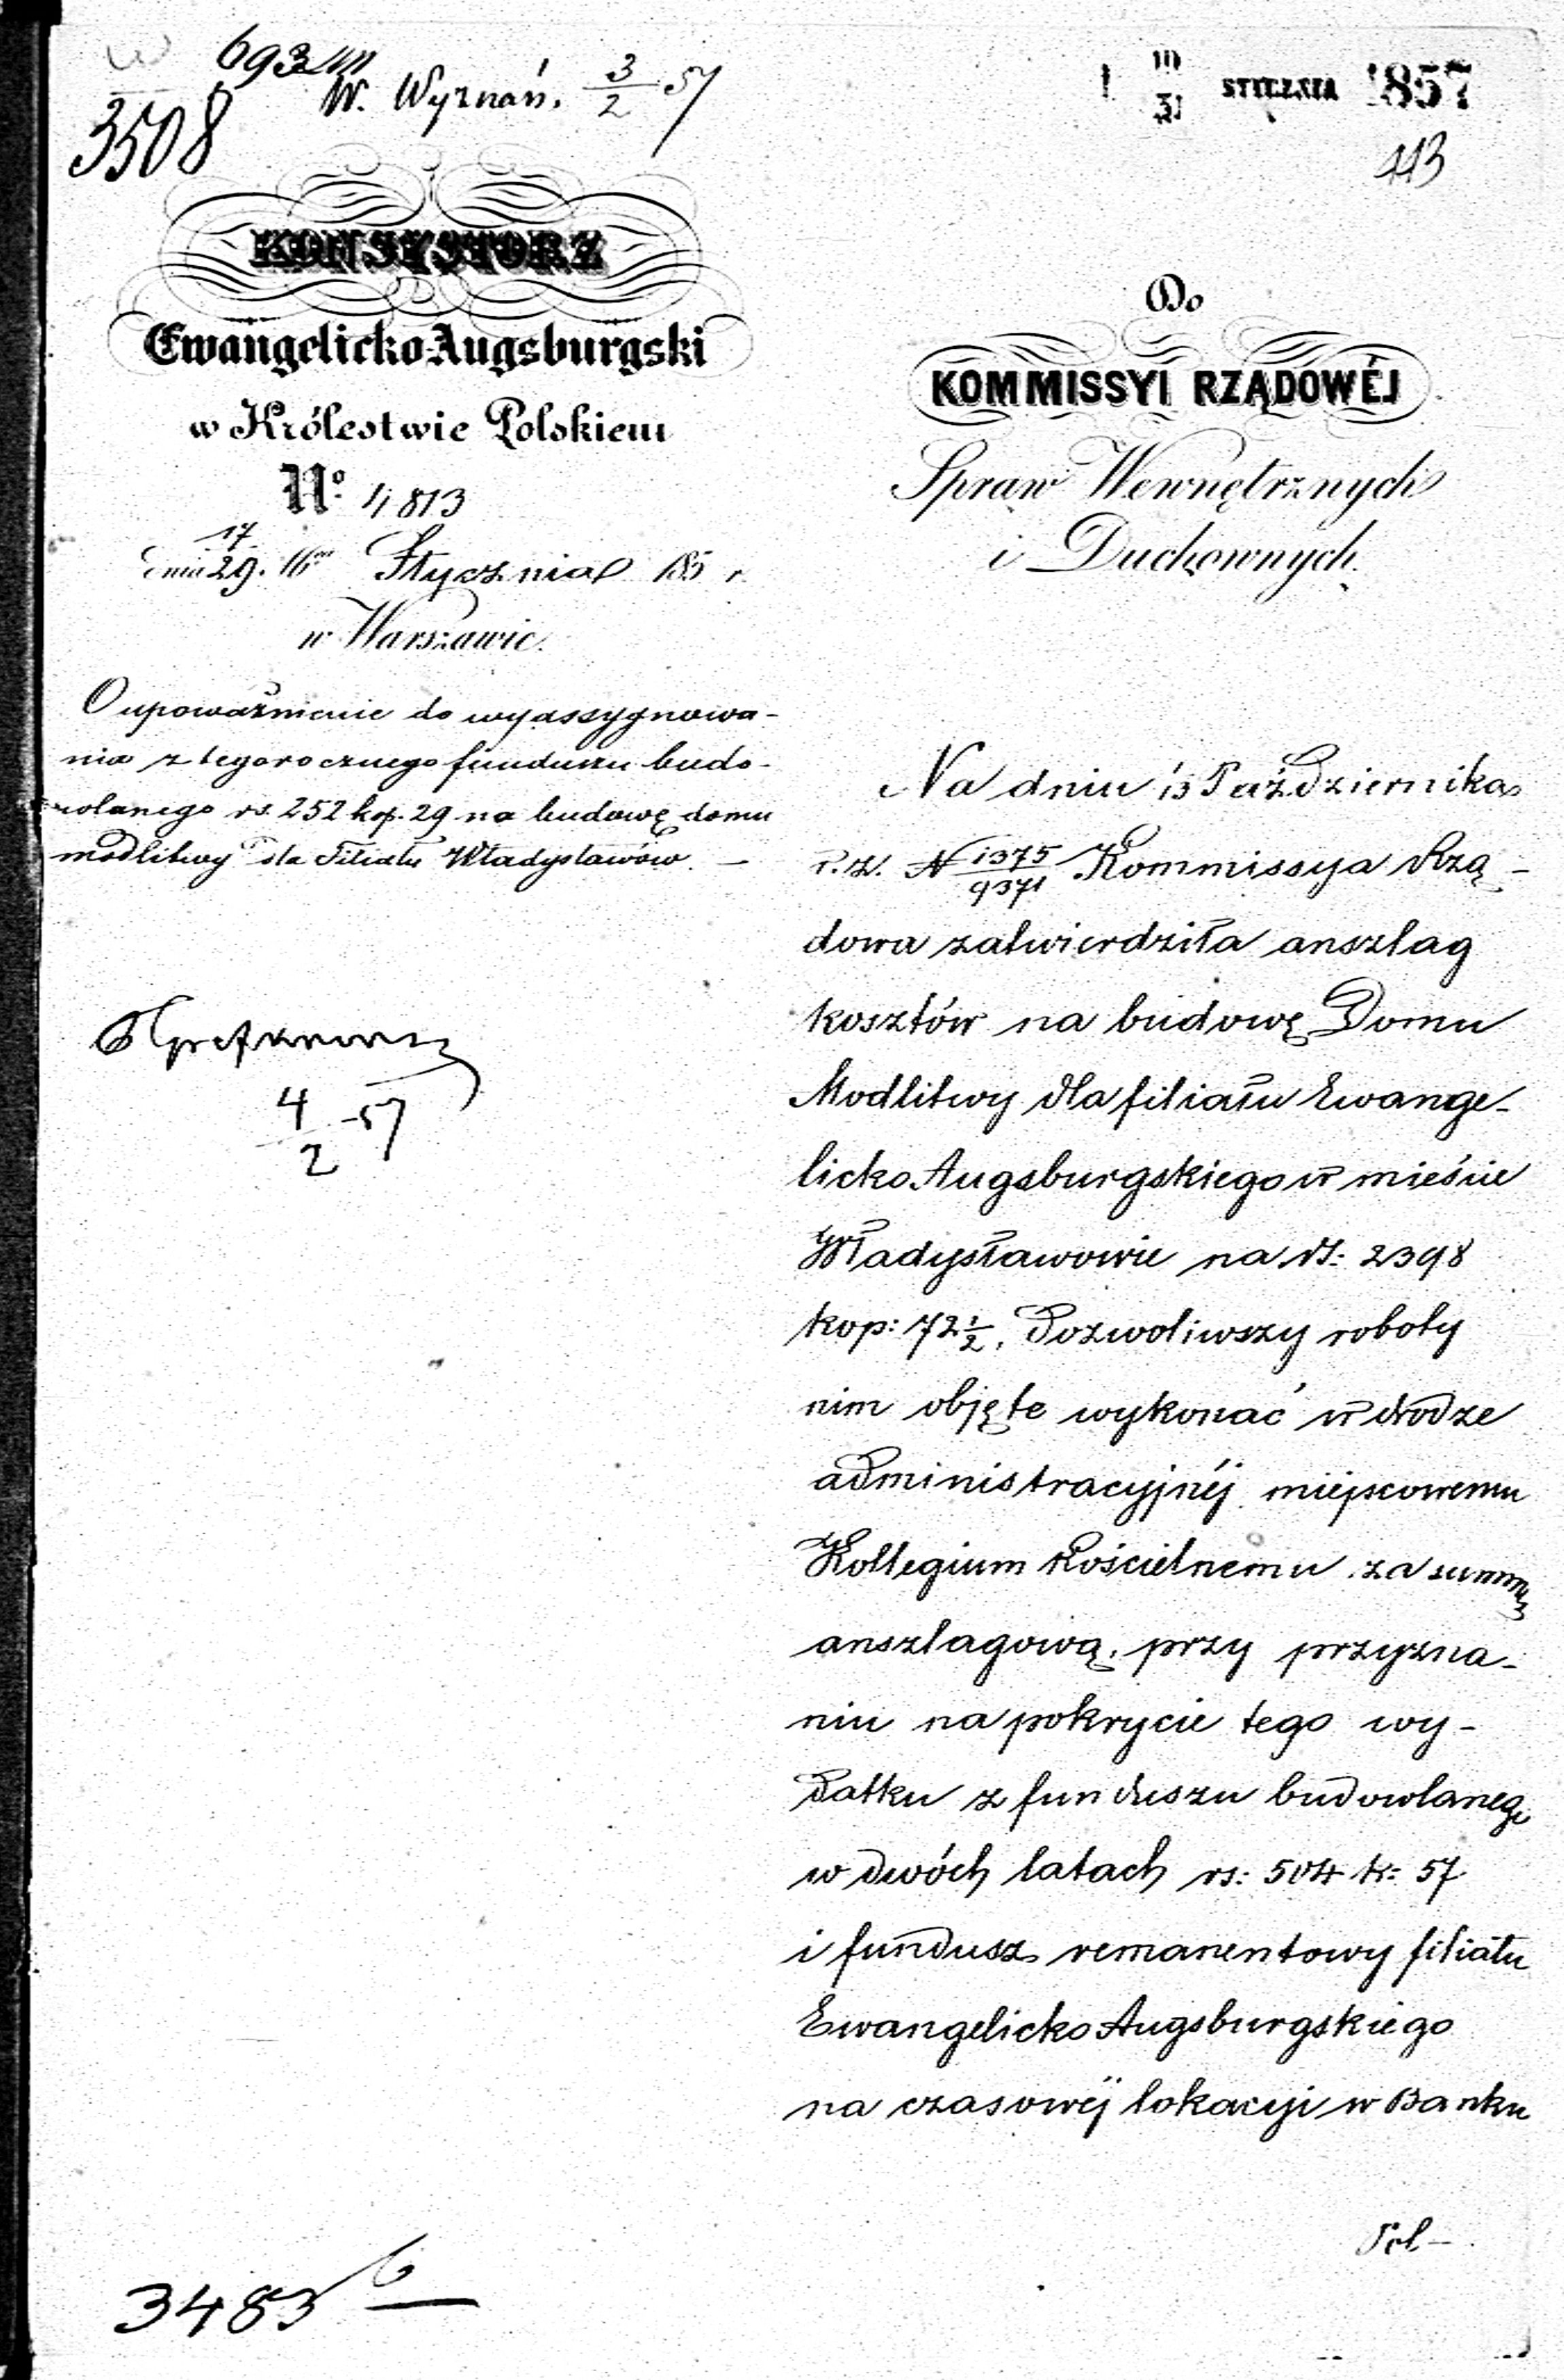 693
W. Wyznań. 3/2 57
3508
STYCZNIA 1857
113
KONSYSTORZ
Ewangelicko Augsburgski
w Królestwie Polskiem
No. 4813
dnia 17/29. Stycznia 185 r.
w Warszawie.
O upoważnienie do wyassygnowa-
nia z tegorocznego funduszu budo-
wlanego rs. 252 kop. 29 na budowę domu
modlitwy dla Filiału Władysławów. —
4/2 57
3483 6
Do
KOMMISSYI RZĄDOWÉJ
Spraw Wewnętrznych
i Duchownych.
Na dniu 13 Października
r. z. N 1375/9371 Kommissya Rzą-
dowa zatwierdziła anszlag
kosztów na budowę Domu
Modlitwy dla filiału Ewange-
licko Augsburgskiego w mieście
Władysławowie na rs: 2398
kop: 72 1/2. Pozwoliwszy roboty
nim objęte wykonać w drodze
administracyjnéj miejscowemu
Kollegium Kościelnemu za summę
anszlagową, przy przyzna-
niu na pokrycie tego wy-
datku z funduszu budowlanego
w dwóch latach rs: 504 k: 57
i fundusz remanentowy filiału
Ewangelicko Augsburgskiego
na czasowéj lokacyi w Banku
Pol-